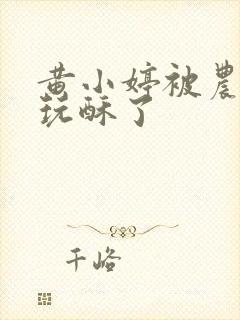 黄小婷被農
玩酥了
千峪